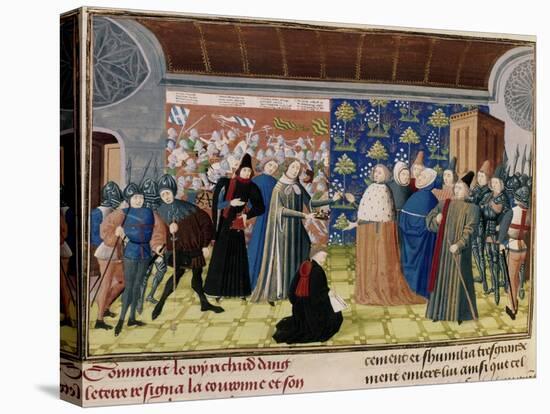 Comment le roy richard dang
leterre resigna la couronne et son
cement et shumilia tresgrande
ment enuers luy ainsi que tel